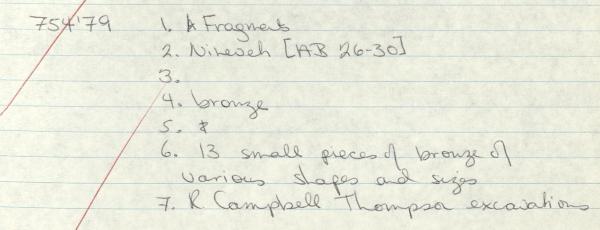 754'79 1. A Fragments
2. Nineveh [AB 26-30]
3.
4. bronze
5. *
6. 13 small pieces of bronze of
various shapes and sizes
7. R Campbell Thompson excavations